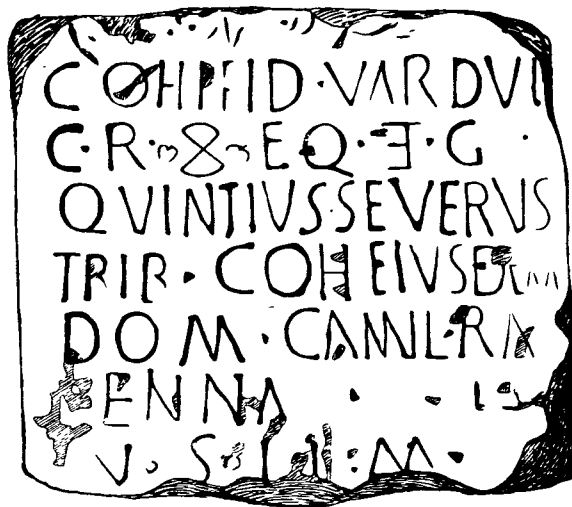 COH I FID · VARDVL
C · R · ∞ · EQ · Ǝ · G ·
QVINTIVS·SEVERVS
TRIB · COH EIVSDEM
DOM · CAMIL·RA
ENNA ·
V · S · L L · M ·